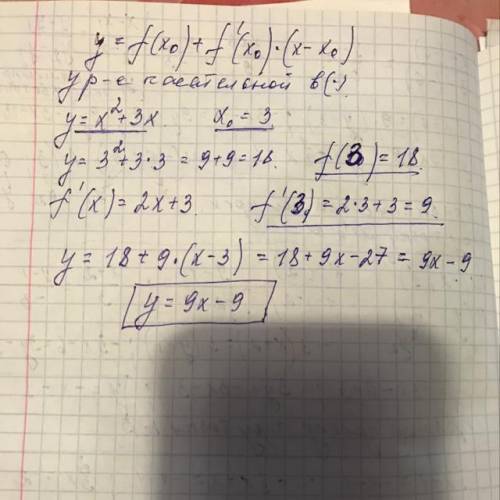 y = f(x₀) + f'(x₀)·(x - x₀)
ур-е касательной в (·)
y = x² + 3x    x₀ = 3
y = 3² + 3·3 = 9 + 9 = 18    f(3) = 18
f'(x) = 2x + 3.    f'(3) = 2·3 + 3 = 9.
y = 18 + 9·(x - 3) = 18 + 9x - 27 = 9x - 9
y = 9x - 9.